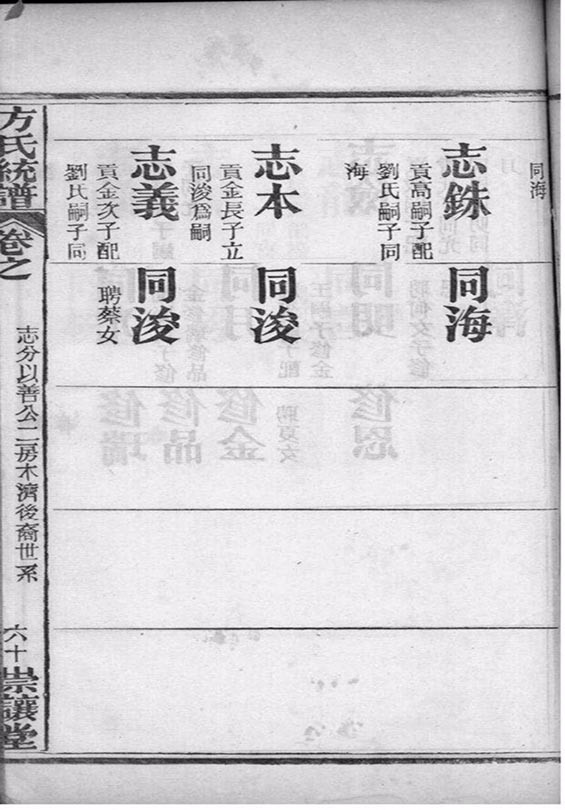 同海
志銖
貢高嗣子配
劉氏嗣子同
海
同海
志本
貢金長子立
同浚為嗣
同浚
志義
貢金次子配
劉氏嗣子同
同浚
聘蔡女
方氏統譜
卷之
志分以善公二房木濟後裔世系
六十
崇讓堂